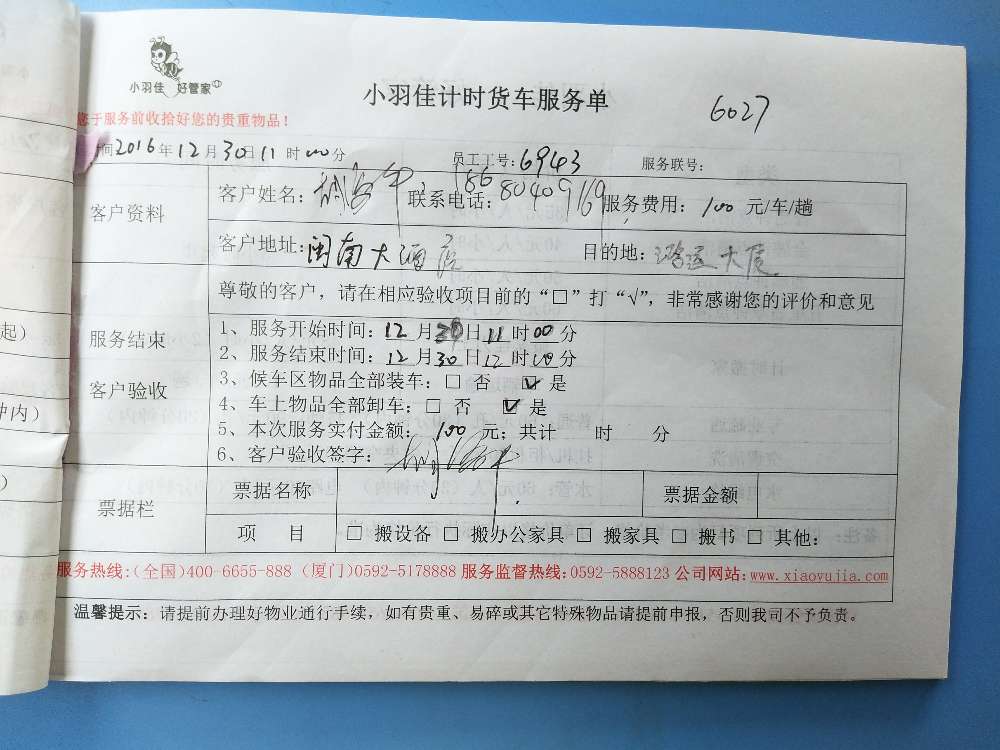 小羽佳 好管家
小羽佳计时货车服务单
6027
您于服务前收拾好您的贵重物品！
间2016年12月30日11时00分 员工工号：6943 服务联号：
客户资料
客户姓名： 联系电话：18680409169 服务费用：100元/车/趟
客户地址：闽南大酒店 目的地：鸿运大厦
服务结束
客户验收
尊敬的客户，请在相应验收项目前的“□”打“√”，非常感谢您的评价和意见
1、服务开始时间：12月30日11时00分
2、服务结束时间：12月30日12时00分
3、候车区物品全部装车：□ 否 ☑ 是
4、车上物品全部卸车：□ 否 ☑ 是
5、本次服务实付金额：100元；共计 时 分
6、客户验收签字：
票据栏
票据名称 票据金额
项 目 □ 搬设备 □ 搬办公家具 □ 搬家具 □ 搬书 □ 其他：
服务热线:(全国)400-6655-888 (厦门)0592-5178888 服务监督热线:0592-5888123 公司网站:www.xiaoyujia.com
温馨提示：请提前办理好物业通行手续，如有贵重、易碎或其它特殊物品请提前申报，否则我司不予负责。
起）
钟内）